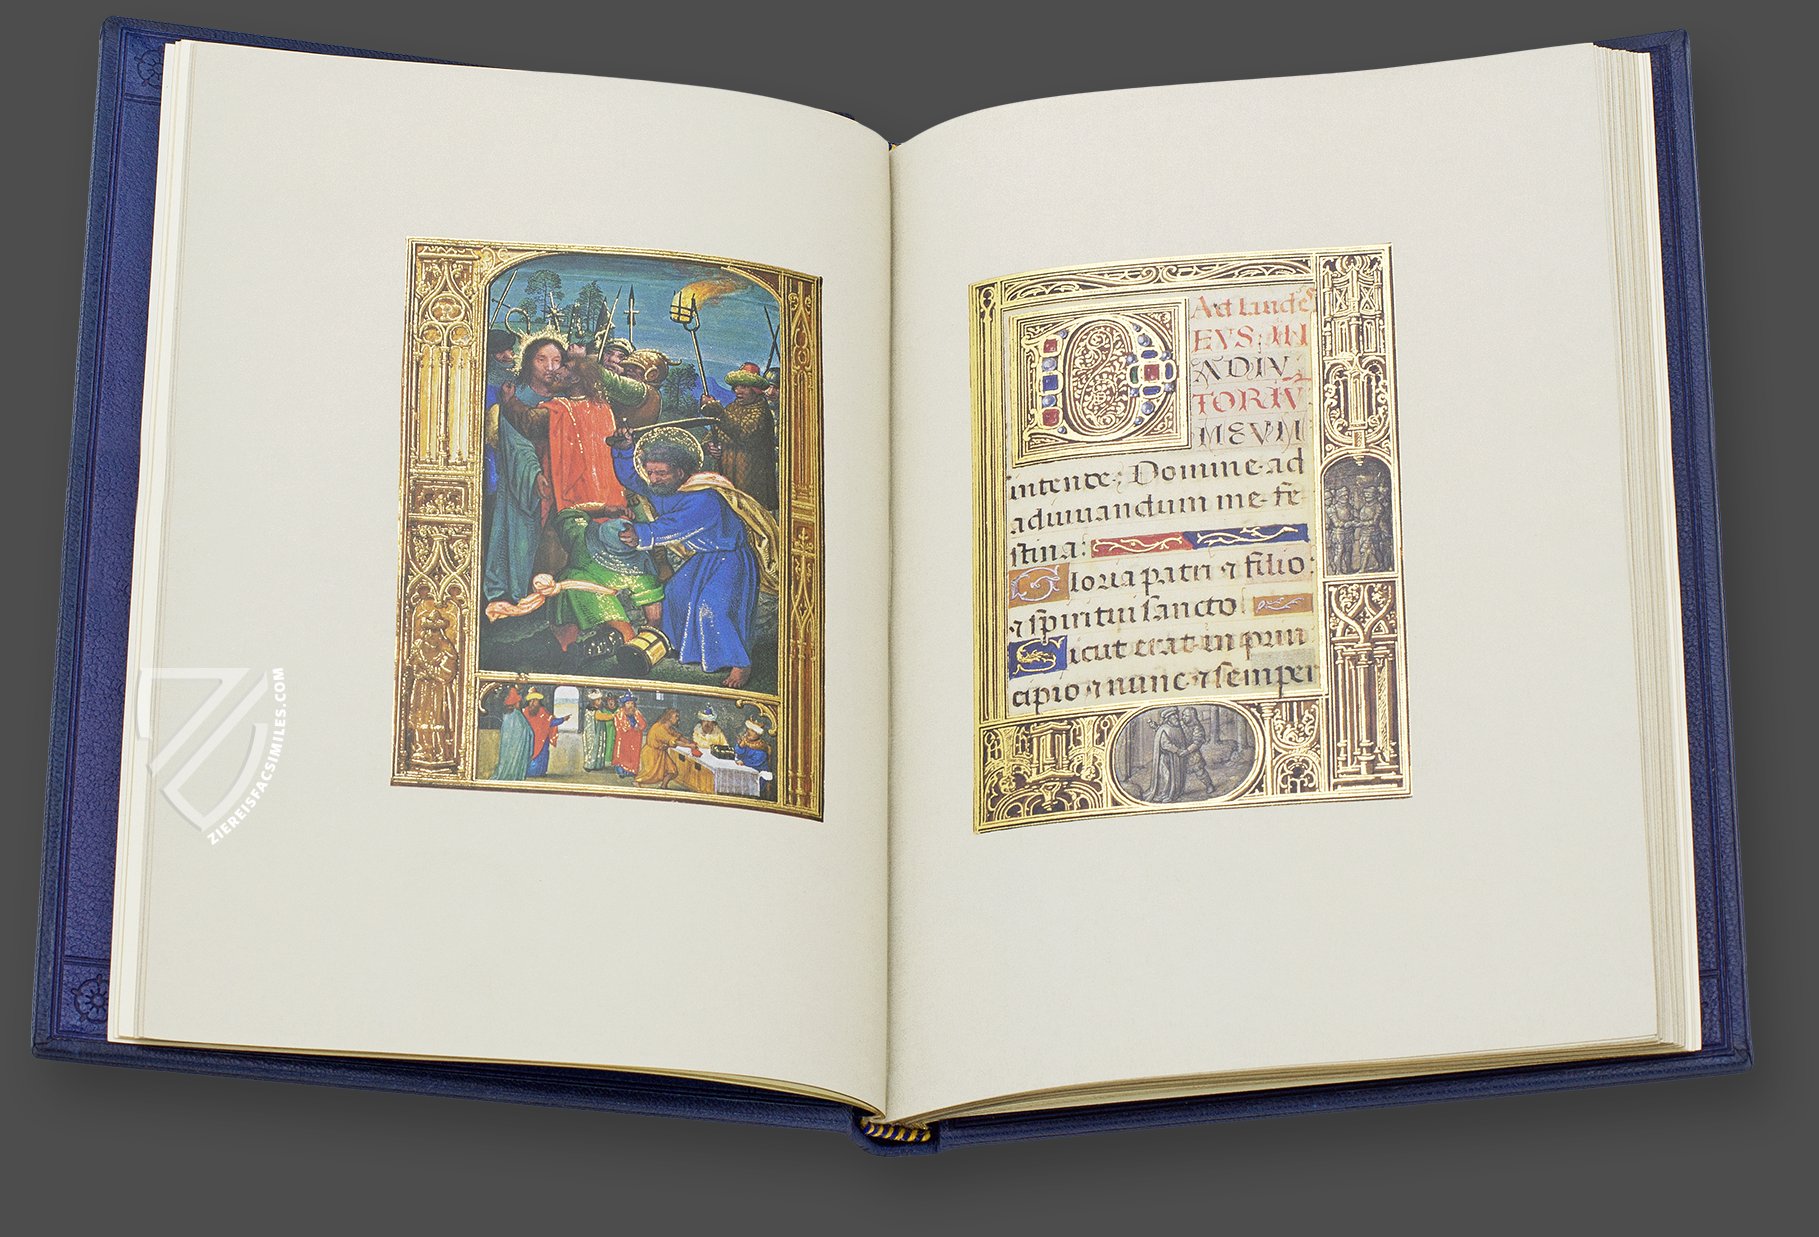 Ad laudes
EVS IN
ADIV
TORIV
MEVM
intende: Domine ad
adiuuandum me fe
stina:
Gloria patri ⁊ filio:
⁊ spiritui sancto
Sicut erat in prin
cipio ⁊ nunc ⁊ semper
ZIEREISFACSIMILES.COM